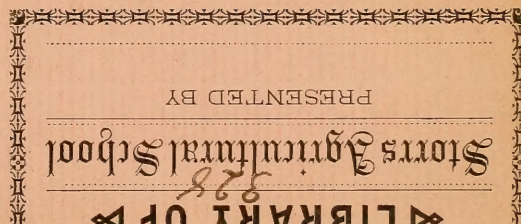 LIBRARY OF
328
Storrs Agricultural School
PRESENTED BY